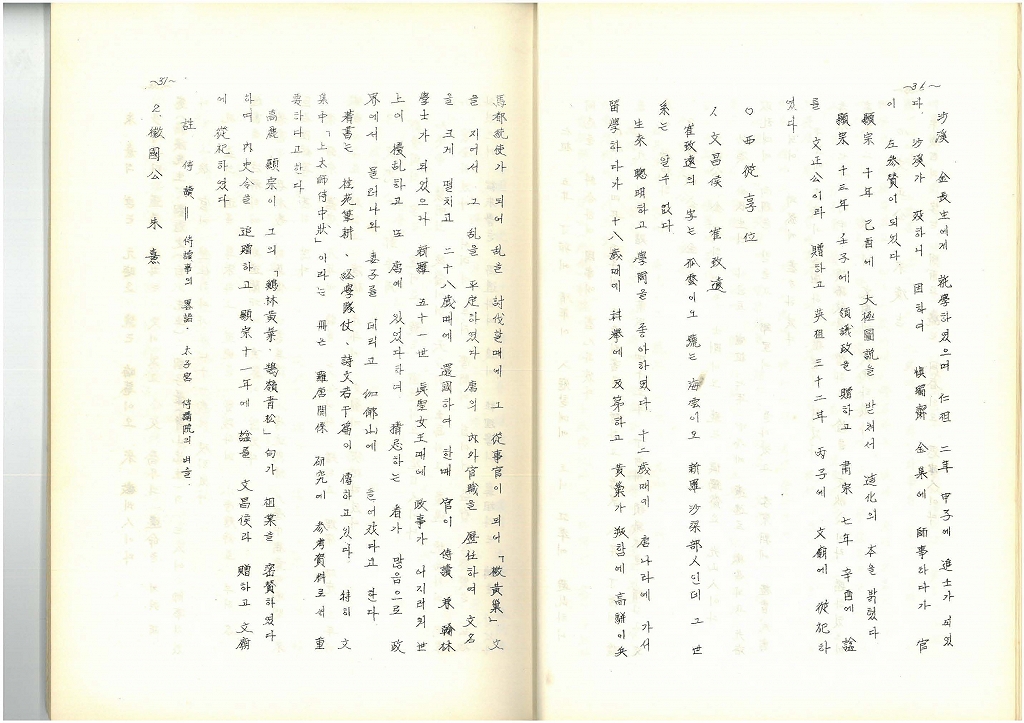 ~36~
沙溪 金長生에게 就學하였으며 仁祖 二年 甲子에 進士가 되었
다. 沙溪가 歿하니 因하여 愼獨齋 金集에 師事하다가 官
이 左參贊이 되었다
顯宗 十年 己酉에 太極圖說을 받쳐서 造化의 本을 밝혔다
顯宗 十三年 壬子에 領議政을 贈하고 肅宗 七年 辛酉에 諡
를 文正公이라 贈하고 英祖 三十二年 丙子에 文廟에 從祀하
였다
○ 西從享位
1. 文昌侯 崔致遠
崔致遠의 字는 孤雲이오 號는 海雲이오 新羅 沙梁部人인데 그 世
系는 알수 없다
生來 聰明하고 學問을 좋아하였다. 十二歲때에 唐나라에 가서
留學하다가 十八歲때에 科擧에 及第하고 黃巢가 叛함에 高騈이 兵
~37~
馬都統使가 되어 乱을 討伐할때에 그 從事官이 되어 「檄黃巢」文
을 지어서 그 乱을 平定하였다 唐의 內外官職을 歷任하여 文名
을 크게 떨치고 二十八歲때에 還國하여 한때 官이 侍讀 兼 翰林
學士가 되었으나 新羅 五十一世 眞聖女王때에 政事가 어지러워 世
上이 擾乱하고 또 唐에 있었다하여 猜忌하는 者가 많음으로 政
界에서 물러나와 妻子를 데리고 伽倻山에 들어갔다고 한다.
著書는 桂苑筆耕、経學隊仗、詩文若干篇이 傳하고 있다. 特히 文
集中「上太師侍中狀」이라는 冊은 羅唐関係 研究에 參考資料로써 重
要하다고 한다.
高麗 顯宗이 그의 「鷄林黃葉·鵠嶺靑松」句가 祖業을 密贊하였다
하여 內史令을 追贈하고 顯宗十一年에 諡를 文昌侯라 贈하고 文廟
에 從祀하였다
註 侍讀＝侍讀事의 畧語. 太子宮 侍講院의 벼슬.
2. 徽國公 朱熹